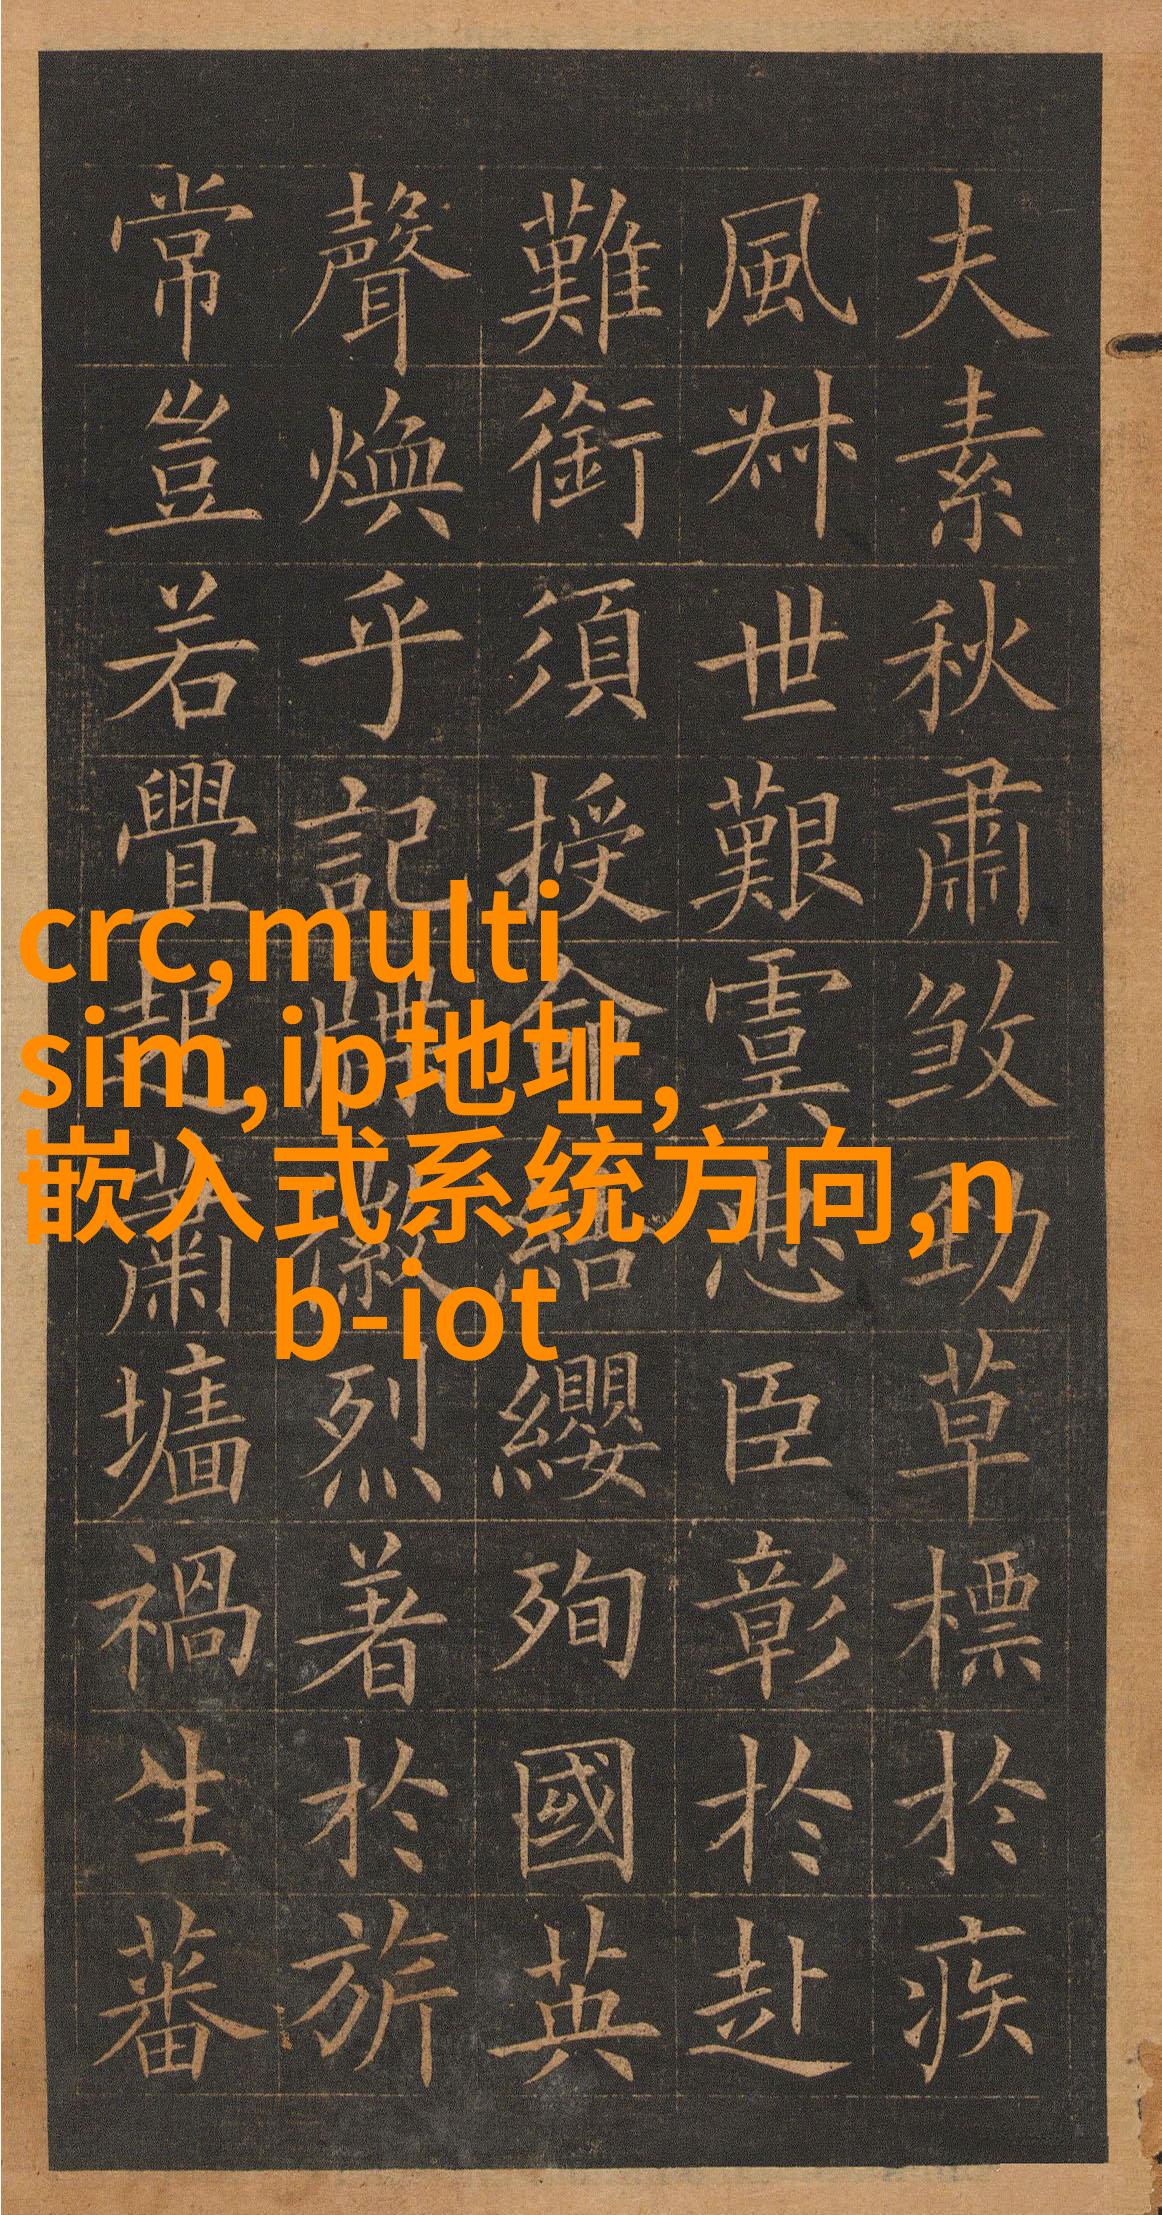 夫素秋肅煞勁草標於疾
風世艱虞忠臣彰於赴
難銜須授命結纓殉國英
聲煥乎記牒徽烈著於旂
常豈若舋起蕭墻禍生蕃
crc,multi
sim,ip地址,
嵌入式系统方向,n
b-iot